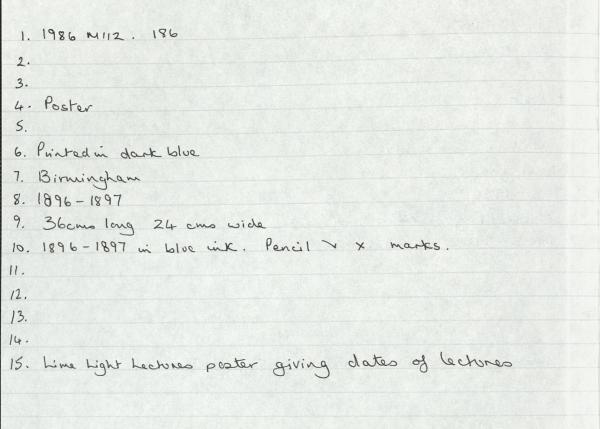 1. 1986 M112. 186
2.
3.
4. Poster
5.
6. Printed in dark blue
7. Birmingham
8. 1896-1897
9. 36cms long 24 cms wide
10. 1896-1897 in blue ink. Pencil ✓ x marks.
11.
12.
13.
14.
15. Lime Light Lectures poster giving dates of lectures